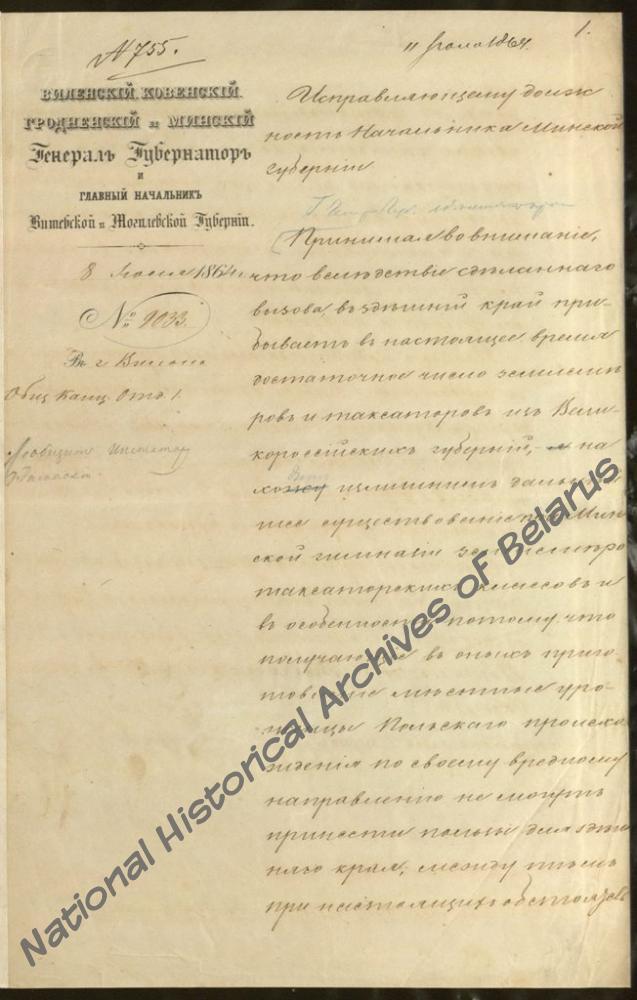 № 755.
1.
11 Іюля 1864.
ВИЛЕНСКІЙ, КОВЕНСКІЙ,
ГРОДНЕНСКІЙ и МИНСКІЙ
Генералъ Губернаторъ
и
ГЛАВНЫЙ НАЧАЛЬНИКЪ
Витебской и Могилевской Губерній.
8 1864 г.
№ 9033.
Въ г. Вильно
Общ. Канц. Отд. 1.
Исправляющему долж
ность Начальника Минской
губерніи
Принимая во вниманіе,
что вслѣдствіе сдѣланнаго
вызова, въ здѣшній край при-
бываетъ въ настоящее время
достаточное число землемѣ
ровъ и таксаторовъ изъ Вели
короссійскихъ губерній, на
хожу излишнимъ дальнѣй
шее существованіе при Мин
ской гимназіи землемѣро
таксаторскихъ классовъ и
въ особенности потому, что
получающіе въ оныхъ приго
товленіе мѣстные уро
женцы Польскаго происхо
жденія по своему вредному
направленію не могутъ
принести пользы для здѣш
няго края, между тѣмъ
при настоящихъ обстоятель
National Historical Archives of Belarus